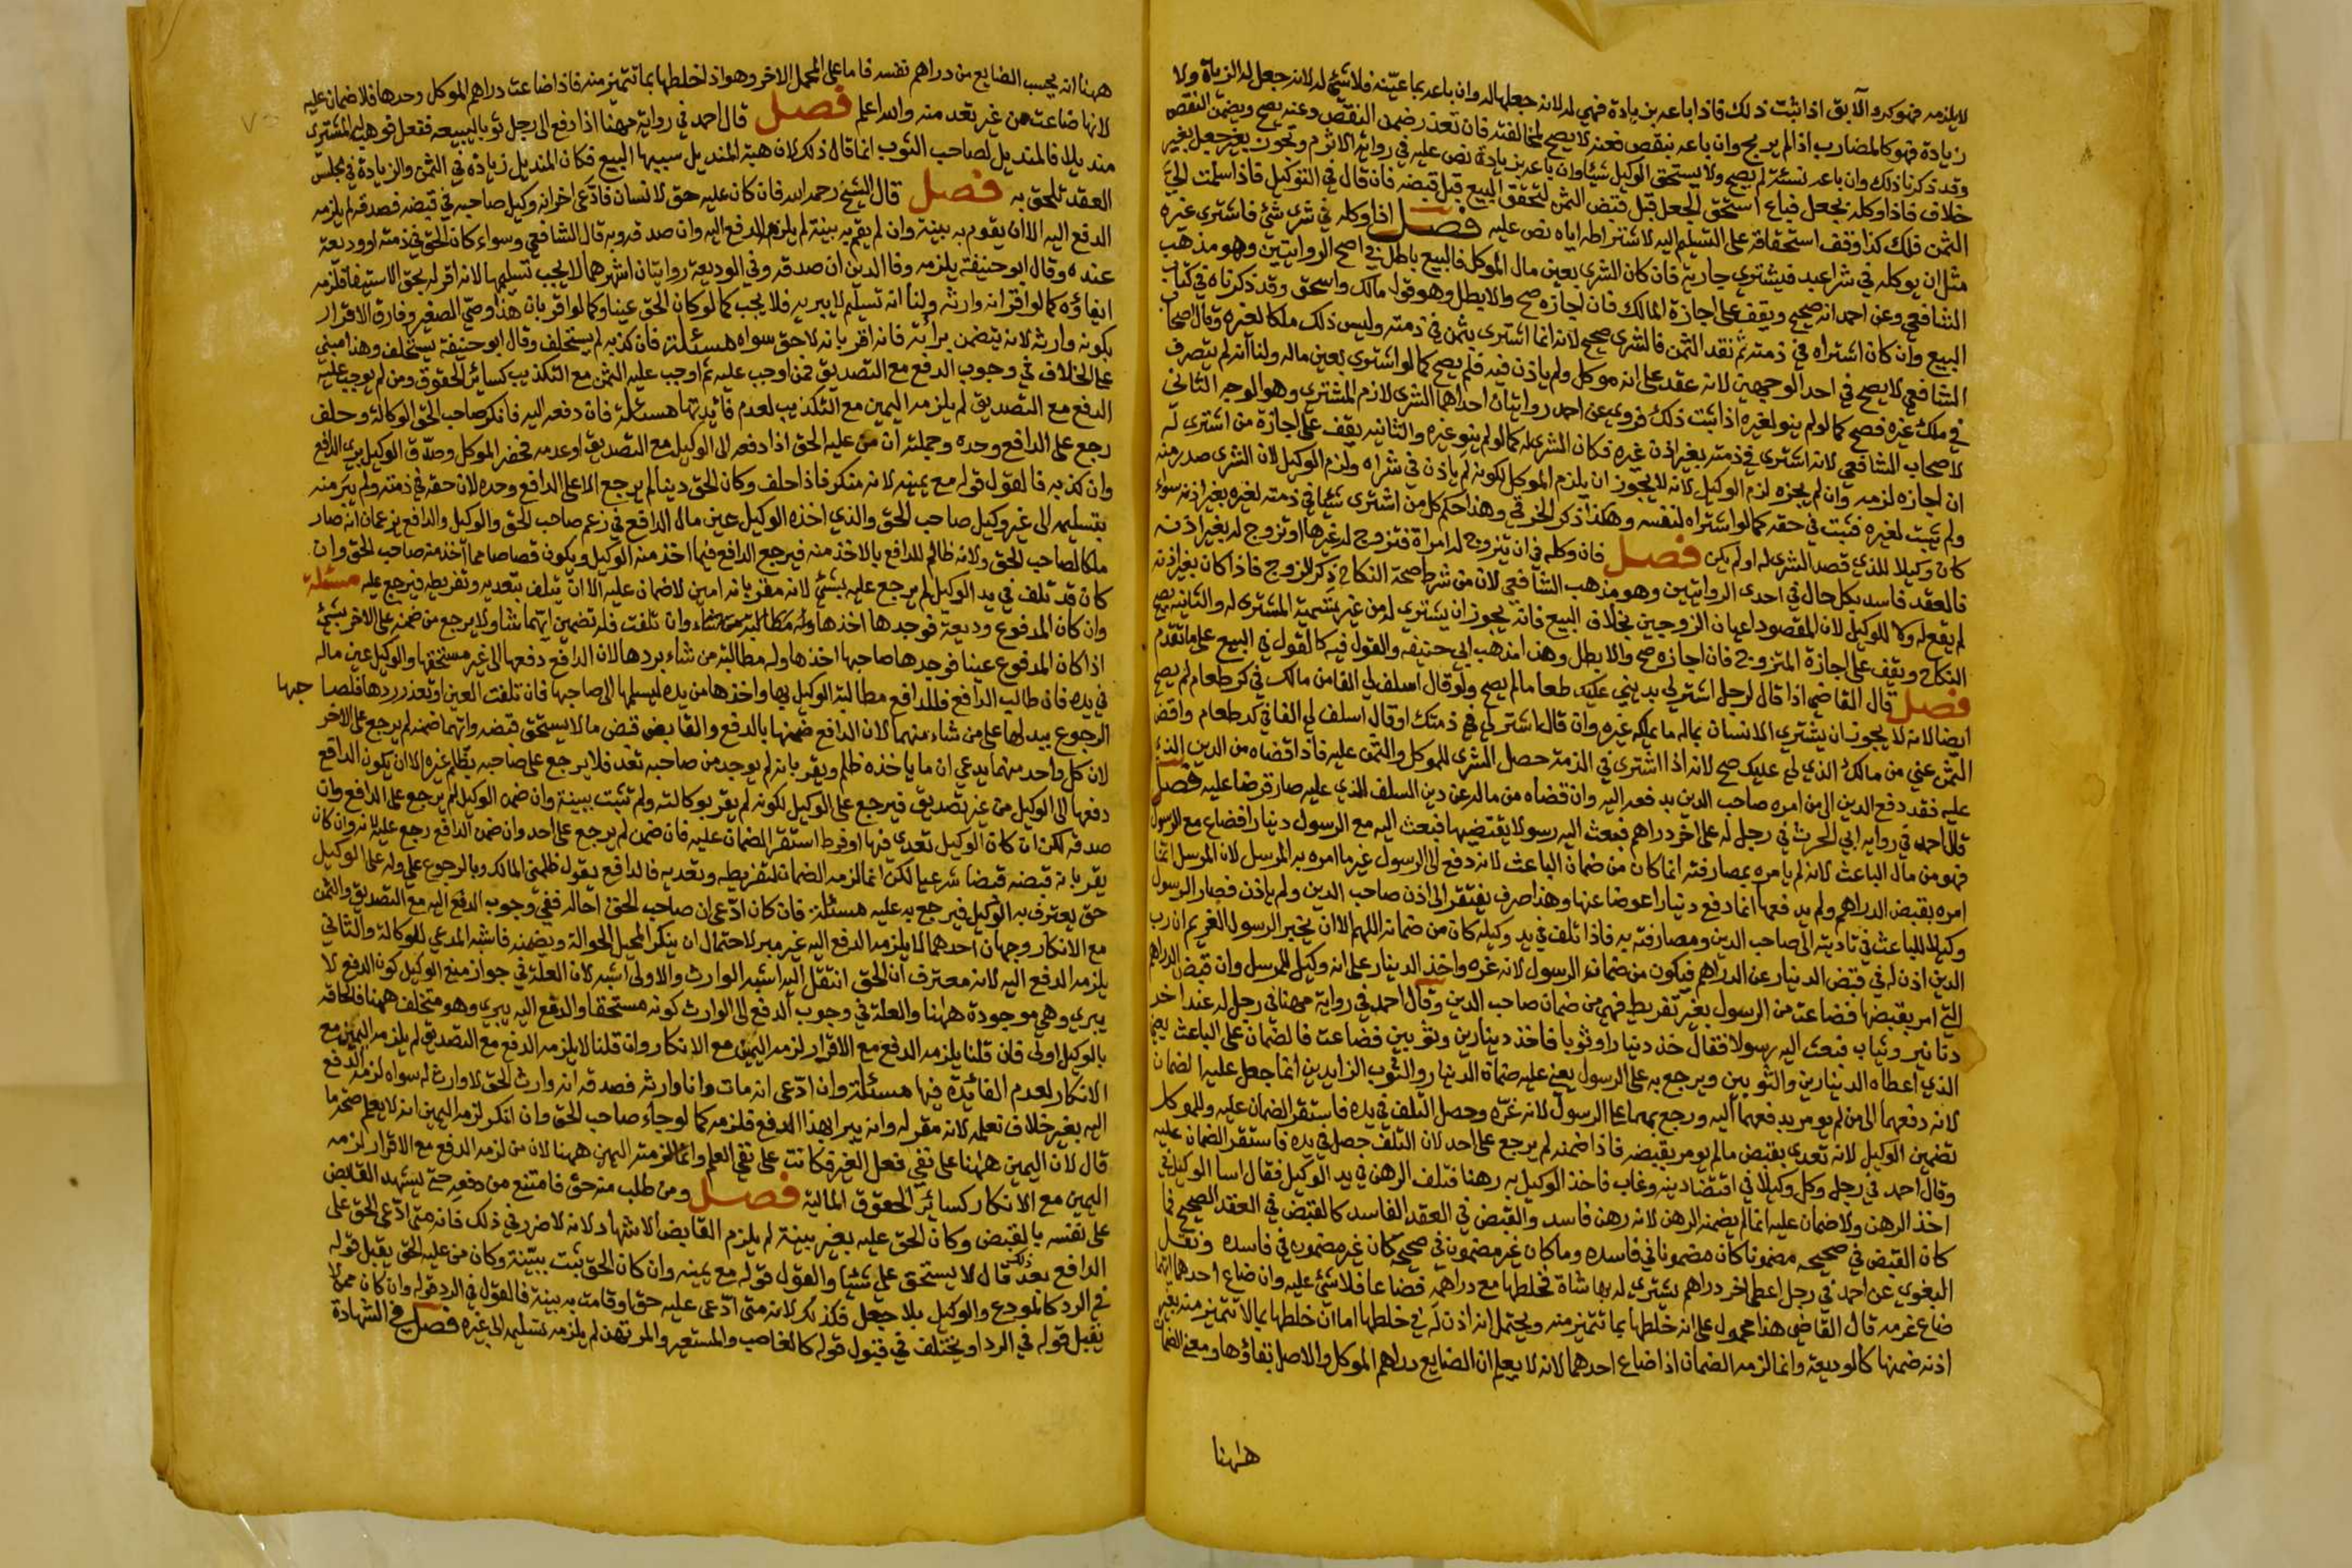 لا يلزمه فهو كه والا بق اذا ثبت ذلك فاذا باعه بزيادة فهي له لانه جعلها له وان باعه بما عينه فلا شئ له لانه جعل له الزيادة ولا
زيادة فهو كالمضارب اذا لم يربح وان باعه بنقص فعنه لا يصح لمخالفته فان تعذر ضمن النقص وعنه يصح ويضمن النقص
وقد ذكرنا ذلك وان باعه نسئة لم يصح ولا يستحق الوكيل شيئا وان باعه بزيادة نص عليه في رواية الاثرم ويجوز بغير جعل بغير
خلاف فاذا وكله بجعل فباع استحق الجعل قبل قبض الثمن لتحقق البيع قبل قبضه فان قال في التوكيل فاذا سلمت الي
الثمن فلك كذا وقف استحقاقه على التسليم اليه لاشتراطه اياه نص عليه فصل اذا وكله في شرى شئ فاشترى غيره
مثل ان يوكله في شرا عبد فيشتري جارية فان كان الشرى بعين مال الموكل فالبيع باطل في اصح الروايتين وهو مذهب
الشافعي وعن احمد انه صحيح ويقف على اجازة المالك فان اجازه صح والا بطل وهو قول مالك واسحق وقد ذكرناه في كتاب
البيع وان كان اشتراه في ذمته ثم نقد الثمن فالشرى صحيح لانه انما اشترى بثمن في ذمته وليس ذلك ملكا لغيره وقال اصحاب
الشافعي لا يصح في احد الوجهين لانه عقد على انه موكل ولم ياذن فيه فلم يصح كما لو اشترى بعين ماله ولنا انه لم يتصرف
في ملك غيره فصح كما لو لم ينو لغيره اذا ثبت ذلك فروي عن احمد روايتان احداهما الشرى لازم للمشتري وهو الوجه الثاني
لاصحاب الشافعي لانه اشترى في ذمته بغير اذن غيره فكان الشرى له كما لو لم ينو غيره والثانيه يقف على اجازة من اشترى له
ان اجازه لزمه وان لم يجزه لزم الوكيل لانه لا يجوز ان يلزم الموكل لكونه لم ياذن في شراه ولزم الوكيل لان الشرى صدر منه
ولم يثبت لغيره فثبت في حقه كما لو اشتراه لنفسه وهكذا ذكر الخرقي وهذا حكم كل من اشترى شيئا في ذمته لغيره بغير اذنه سواء
كان وكيلا للذي قصد الشرى له او لم يكن فصل فان وكله في ان يتزوج له امراة فتزوج له غيرها او تزوج له بغير اذنه
فالعقد فاسد بكل حال في احدى الروايتين وهو مذهب الشافعي لان من شرط صحة النكاح ذكر الزوج فاذا كان بغير اذنه
لم يقع له ولا للوكيل لان المقصود اعيان الزوجين بخلاف البيع فانه يجوز ان يشتري له من غير تسمية المشترى له والثانيه يصح
النكاح ويقف على اجازة المتزوج فان اجازه صح والا بطل وهذا مذهب ابي حنيفه والقول فيه كالقول في البيع على ما تقدم
فصل قال القاضي اذا قال لرجل اشتر لي بديني عليك طعاما لم يصح ولو قال اسلف لي الفا من مالك في كر طعام لم يصح
ايضا لانه لا يجوز ان يشتري الانسان بماله ما يملكه غيره وان قال اشتر لي في ذمتك او قال اسلف لي الفا في كد طعام واقض
الثمن عني من مالك او الذي لي عليك صح لانه اذا اشترى في الذمة حصل الشرى للموكل والثمن عليه فاذا قضاه من الدين الذي
عليه فقد دفع الدين الى من امره صاحب الدين بدفعه اليه وان قضاه من ماله عن دين السلف الذي عليه صار قرضا عليه فصل
قال احمد في رواية ابي الحرث في رجل له على اخر دراهم فبعث اليه رسولا يقبضها فبعث اليه مع الرسول دينارا فضاع مع الرسول
فهو من مال الباعث لانه لم يامره بمصارفته انما كان من ضمان الباعث لانه دفع الى الرسول غير ما امره به المرسل لان المرسل انما
امره بقبض الدراهم ولم يدفعها انما دفع دينارا عوضا عنها وهذا صرف يفتقر الى اذن صاحب الدين ولم ياذن فصار الرسول
وكيلا للباعث في تاديته الى صاحب الدين ومصارفته به فاذا تلف في يد وكيله كان من ضمانه اللهم الا ان يخبر الرسول الغريم ان رب
الدين اذن له في قبض الدينار عن الدراهم فيكون من ضمان الرسول لانه غره واخذ الدينار على انه وكيل للمرسل وان قبض الدراهم
التي امر بقبضها فضاعت من الرسول بغير تفريط فهي من ضمان صاحب الدين وقال احمد في رواية مهنا في رجل له عند اخر
دنانير وثياب فبعث اليه رسولا فقال خذ دينارا وثوبا فاخذ دينارين وثوبين فضاعت فالضمان على الباعث يعني
الذي اعطاه الدينارين والثوبين ويرجع به على الرسول يعني عليه ضمان الدينار والثوب الزايدين انما جعل عليه الضمان
لانه دفعهما الى من لم يومر بدفعهما اليه ورجع بهما على الرسول لانه غره وحصل التلف في يده فاستقر الضمان عليه وللموكل
تضمين الوكيل لانه تعدى بقبض ما لم يومر بقبضه فاذا ضمنه لم يرجع على احد لان التلف حصل في يده فاستقر الضمان عليه
وقال احمد في رجل وكل وكيلا في اقتضا دينه وغاب فاخذ الوكيل به رهنا فتلف الرهن في يد الوكيل فقال اسا الوكيل في
اخذ الرهن ولا ضمان عليه انما لم يضمنه الرهن لانه رهن فاسد والقبض في العقد الفاسد كالقبض في العقد الصحيح فما
كان القبض في صحيحه مضمونا كان مضمونا في فاسده وما كان غير مضمون في صحيحه كان غير مضمون في فاسده ونقل
البغوي عن احمد في رجل اعطى اخر دراهم يشتري له بها شاة فخلطها مع دراهمه فضاعا فلا شئ عليه وان ضاع احدهما ايهما
ضاع غرمه قال القاضي هذا محمول على انه خلطها بما تتميز منه ويحتمل انه اذن له في خلطها اما ان خلطها بما لا تتميز منه بغير
اذنه ضمنها كالوديعة وانما لزمه الضمان اذا ضاع احدهما لانه لا يعلم ان الضايع دراهم الموكل والاصل بقاؤها ومعنى الضمان
ههنا
ههنا انه يحسب الضايع من دراهم نفسه فاما على المحمل الاخر وهو اذا خلطها بما تتميز منه فاذا ضاعت دراهم الموكل وحدها فلا ضمان عليه
لانها ضاعت من غير تعد منه والله اعلم فصل قال احمد في رواية مهنا اذا دفع الى رجل ثوبا ليبيعه ففعل فوهب له المشتري
منديلا فالمنديل لصاحب الثوب انما قال ذلك لان هبة المنديل سببها البيع فكان المنديل زيادة في الثمن والزيادة في مجلس
العقد تلحق به فصل قال الشيخ رحمه الله فان كان عليه حق لانسان فادعى اخر انه وكيل صاحبه في قبضه فصدقه لم يلزمه
الدفع اليه الا ان يقوم به بينة وان لم يقم به بينة لم يلزمه الدفع اليه وان صدقه وبه قال الشافعي وسواء كان الحق في ذمته او وديعة
عنده وقال ابو حنيفة يلزمه وفا الدين ان صدقه وفي الوديعة روايتان اشهرهما لا يجب تسليمها لانه اقر له بحق الاستيفا فلزمه
ايفاؤه كما لو اقر انه وارثه ولنا انه تسليم لا يبريه فلا يجب كما لو كان الحق عينا وكما لو اقر بان هذا وصي الصغير وفارق الاقرار
بكونه وارثه لانه يتضمن برائته فانه اقر بانه لا حق سواه مسئلة فان كذبه لم يستحلف وقال ابو حنيفة يستحلف وهذا مبني
على الخلاف في وجوب الدفع مع التصديق فمن اوجب عليه ثم اوجب عليه الثمن مع التكذيب كسائر الحقوق ومن لم يوجب عليه
الدفع مع التصديق لم يلزمه اليمين مع التكذيب لعدم فائدتها مسئلة فان دفعه اليه فانكر صاحب الحق الوكالة وحلف
رجع على الدافع وحده وجملته ان من عليه الحق اذا دفعه الى الوكيل مع التصديق او عدمه فحضر الموكل وصدق الوكيل بري الدافع
وان كذبه فالقول قوله مع يمينه لانه منكر فاذا حلف وكان الحق دينا لم يرجع الا على الدافع وحده لان حقه في ذمته ولم يبر منه
بتسليمه الى غير وكيل صاحب الحق والذي اخذه الوكيل عين مال الدافع في زعم صاحب الحق والوكيل والدافع يزعمان انه صار
ملكا لصاحب الحق ولانه ظالم للدافع بالاخذ منه فيرجع الدافع فيما اخذ منه الوكيل ويكون قصاصا مما اخذ منه صاحب الحق وان
كان قد تلف في يد الوكيل لم يرجع عليه بشئ لانه مقر بانه امين لا ضمان عليه الا ان يتلف بتعديه وتفريطه فيرجع عليه مسئلة
وان كان المدفوع وديعة فوجدها اخذها وله مطالبة من شاء وان تلفت فله تضمين ايهما شا ولا يرجع من ضمنه على الاخر بشئ
اذا كان المدفوع عينا فوجدها صاحبها اخذها وله مطالبة من شاء بردها لان الدافع دفعها الى غير مستحقها والوكيل عين ماله
في يده فان طالب الدافع فللدافع مطالبة الوكيل بها واخذها من يده ليسلمها الى صاحبها فان تلفت العين او تعذر ردها فلصا حبها
الرجوع ببدلها على من شاء منهما لان الدافع ضمنها بالدفع والقابض قبض ما لا يستحق قبضه وايهما ضمنه لم يرجع على الاخر
لان كل واحد منهما يدعي ان ما ياخذه ظلم ويقر بانه لم يوجد من صاحبه تعد فلا يرجع على صاحبه بظلم غيره الا ان يكون الدافع
دفعها الى الوكيل من غير تصديق فيرجع على الوكيل لكونه لم يقر بوكالته ولم تثبت ببينة وان ضمن الوكيل لم يرجع على الدافع وان
صدقه لكن ان كان الوكيل تعدى فيها او فرط استقر الضمان عليه فان ضمن لم يرجع على احد وان ضمن الدافع رجع عليه لانه وان كان
يقر بانه قبضه قبضا شرعيا لكن انما لزمه الضمان لتفريطه وتعديه فالدافع يقول ظلمني المالك وبالرجوع علي وله على الوكيل
حق يعترف به الوكيل فيرجع به عليه مسئلة فان كان ادعى ان صاحب الحق احاله ففي وجوب الدفع اليه مع التصديق واليمين
مع الانكار وجهان احدهما لا يلزمه الدفع اليه غير مبر لاحتمال ان ينكر المحيل الحوالة ويضمنه فاشبه المدعي للوكالة والثاني
يلزمه الدفع اليه لانه معترف ان الحق انتقل اليه اشبه الوارث والاولى اشبه لان العلة في جواز منع الوكيل كون الدفع لا
يبري وهي موجودة ههنا والعلة في وجوب الدفع الى الوارث كونه مستحقا والدفع اليه يبري وهو متخلف ههنا فالحاقه
بالوكيل اولى فان قلنا يلزمه الدفع مع الاقرار لزمه اليمين مع الانكار وان قلنا لا يلزمه الدفع مع التصديق لم يلزمه اليمين مع
الانكار لعدم الفائدة فيها مسئلة وان ادعى انه مات وانا وارثه فصدقه انه وارث الحق لا وارث له سواه لزمه الدفع
اليه بغير خلاف نعلمه لانه مقر له وانه يبرا بهذا الدفع فلزمه كما لو جاء صاحب الحق وان انكر لزمه اليمين انه لا يعلم صحة ما
قال لان اليمين ههنا على نفي فعل الغير فكانت على نفي العلم وانما لزمته اليمين ههنا لان من لزمه الدفع مع الاقرار لزمه
اليمين مع الانكار كسائر الحقوق المالية فصل ومن طلب منه حق فامتنع من دفعه حتى يشهد القابض
على نفسه بالقبض وكان الحق عليه بغير بينة لم يلزم القابض الاشهاد لانه لا ضرر في ذلك فانه متى ادعى الحق على
الدافع بعد ذلك قال لا يستحق علي شيئا والقول قوله مع يمينه وان كان الحق ثبت ببينة وكان من عليه الحق يقبل قوله
في الرد كالمودع والوكيل بلا جعل فكذلك لانه متى ادعى عليه حق او قامت به بينة فالقول في الرد قوله وان كان ممن لا
يقبل قوله في الرد او يختلف في قبول قوله كالغاصب والمستعير والمرتهن لم يلزمه تسليمه الى غيره فصل في الشهادة